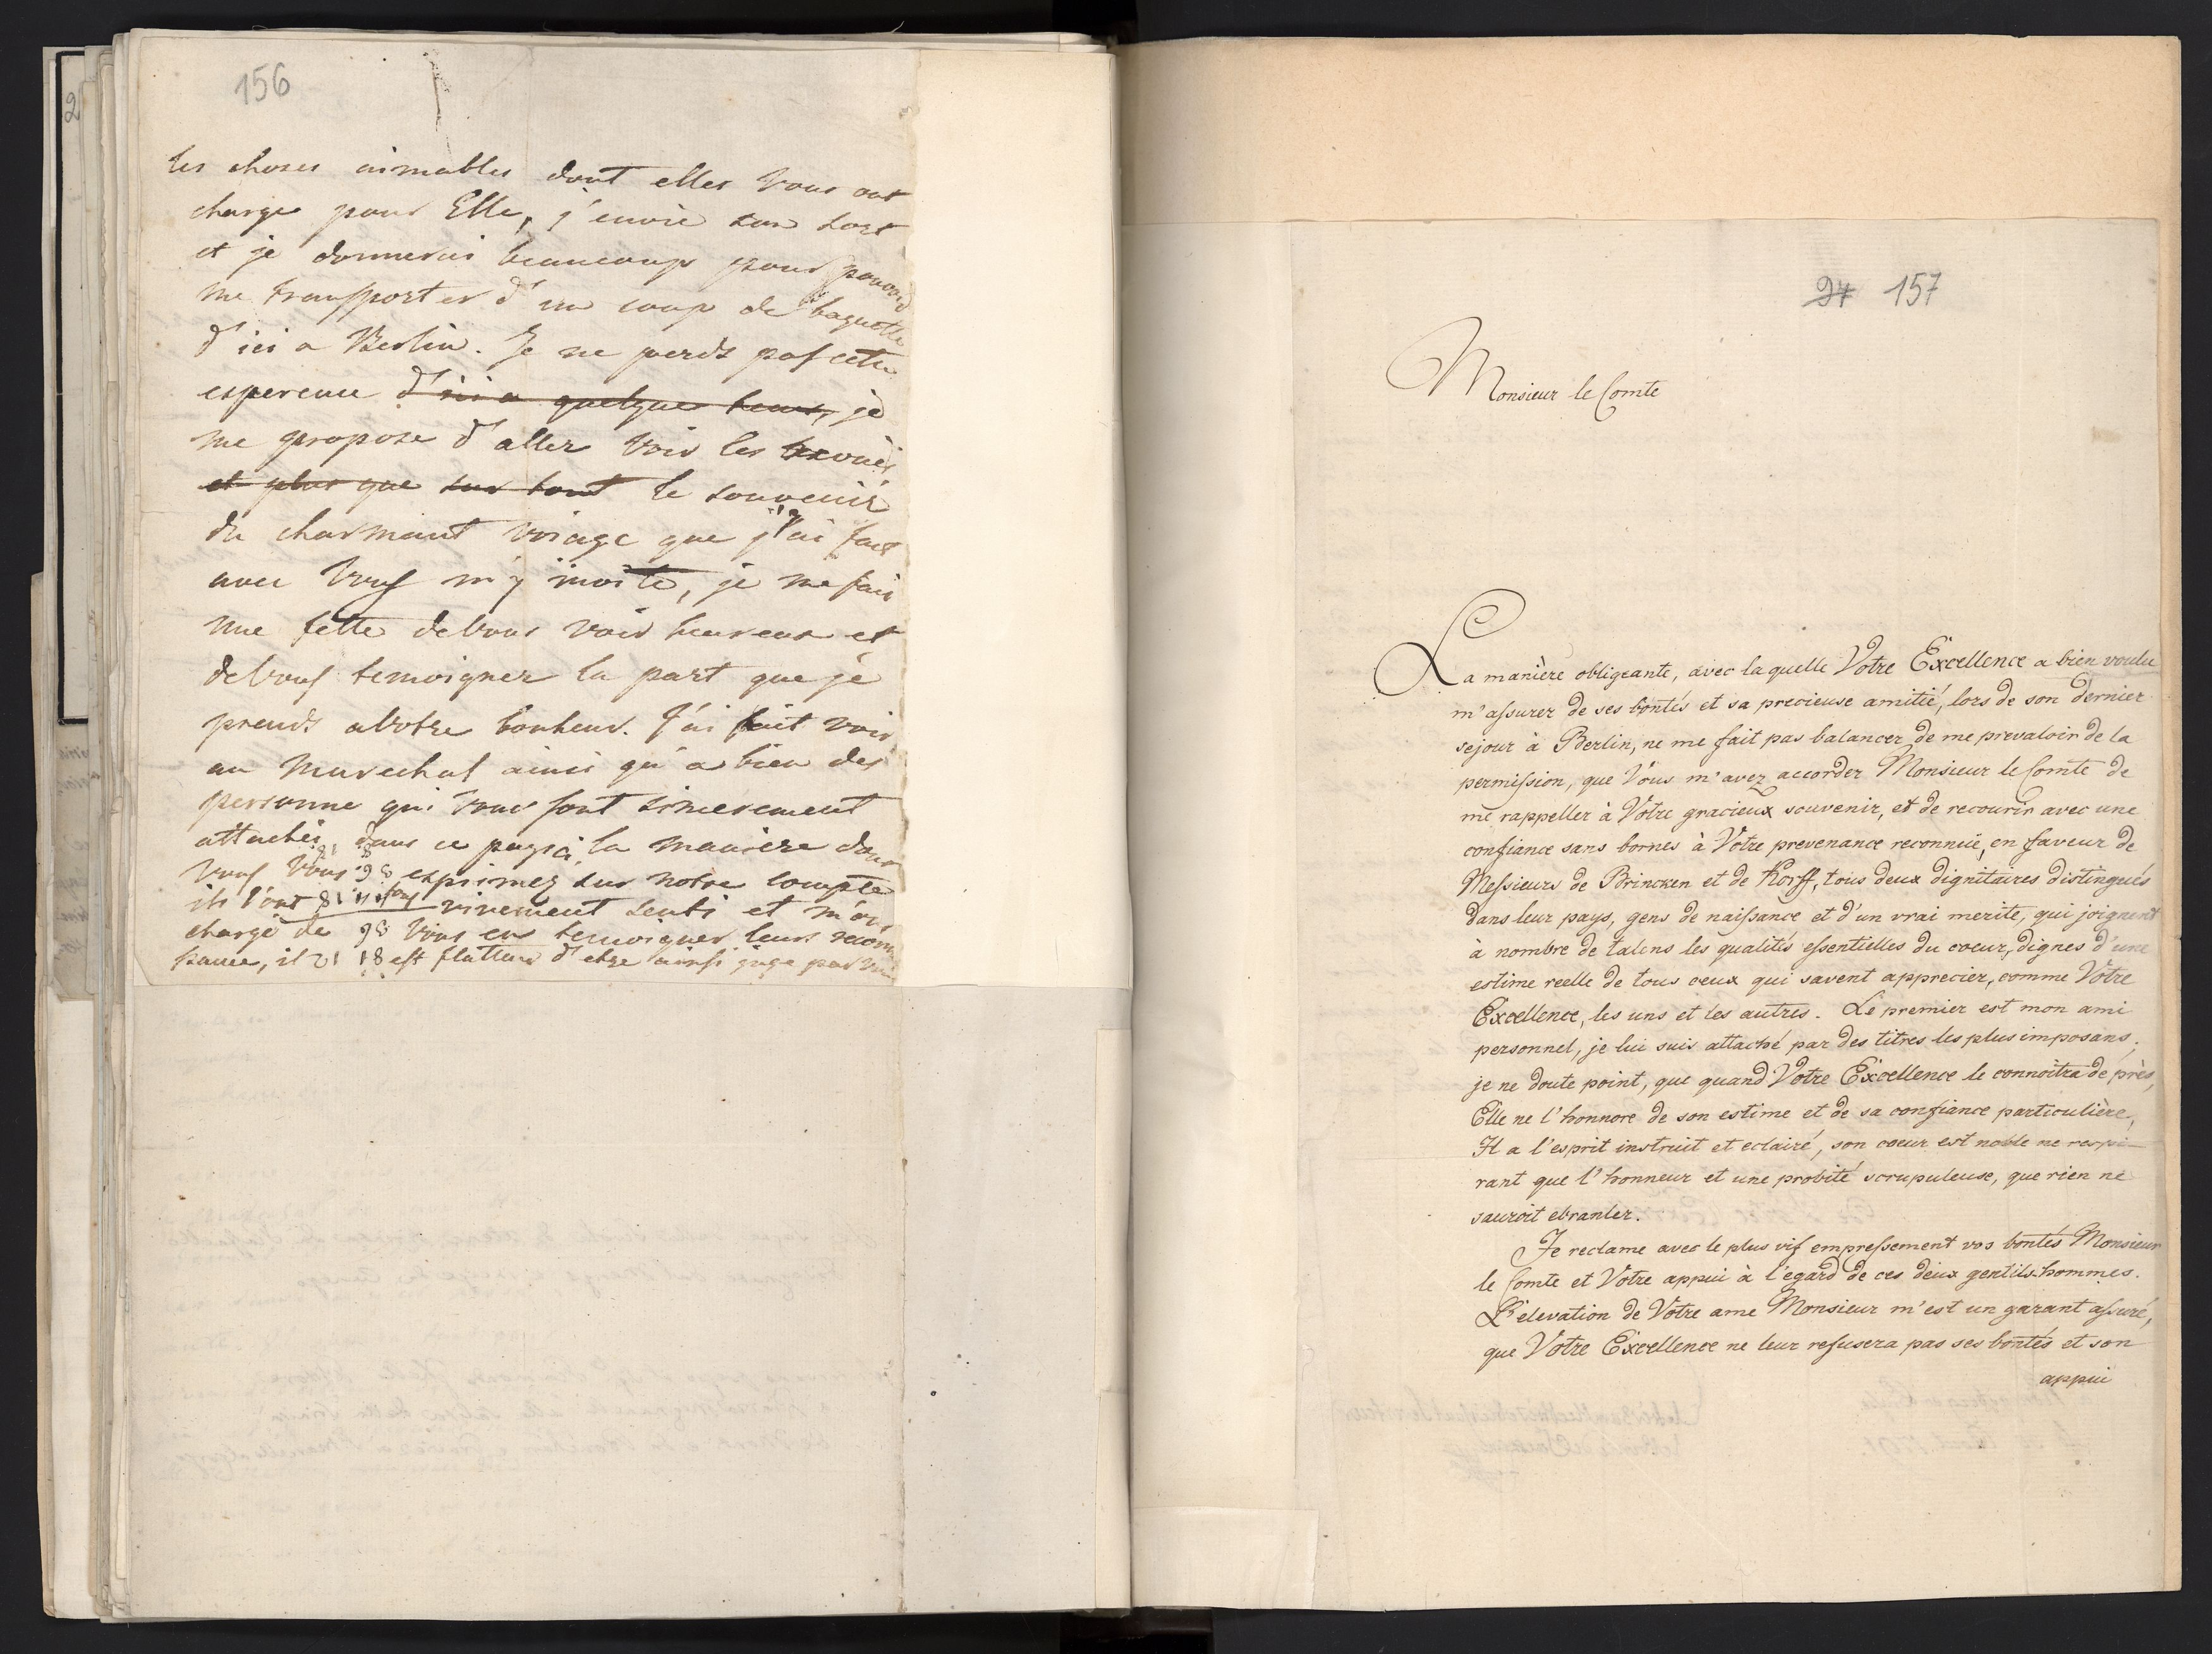 156
les choses aimables dont elles vous ont
charge pour Elle, j'envie son sort
et je donnerai beaucoup pour pouvoir
me transporter d'un coup de baguette
d'ici a Berlin. Je ne perds pas cette
esperence d'ici a quelques tems, je
me propose d'aller voir les
et plus que sur tout le souvenir
du charmant voiage que j'ai fait
avec vous m'y invite, je me fais
une fette de vous voir heureux et
de vous temoigner la part que je
prends a votre bonheur. J'ai fait voir
au Marechal ainsi qu'a bien des
personne qui vous sont sincerement
attachés dans ce pays ci, la maniere dont
vous vous exprimez sur notre compte
ils l'ont vivement senti et m'ont
chargé de vous en temoigner leurs
il est flatteur d'etre ainsi jugé par
24 157
Monsieur le Comte
La manière obligeante, avec laquelle Votre Excellence a bien voulu
m'assurer de ses bontés et sa precieuse amitié, lors de son dernier
sejour à Berlin, ne me fait pas balancer de me prevaloir de la
permission, que Vous m'avez accorder Monsieur le Comte de
me rappeller à Votre gracieux souvenir, et de recourir avec une
confiance sans bornes à Votre prevenance reconnuë, en faveur de
Messieurs de Brincken et de Korff, tous deux dignitaires distingués
dans leur pays, gens de naissance et d'un vrai merite, qui joignent
à nombre de talens les qualités essentielles du coeur, dignes d'une
estime reelle de tous ceux qui savent apprecier, comme Votre
Excellence, les uns et les autres. Le premier est mon ami
personnel, je lui suis attaché par des titres les plus imposans;
je ne doute point, que quand Votre Excellence le connoîtra de près,
Elle ne l'honnore de son estime et de sa confiance particulière,
Il a l'esprit instruit et eclairé, son coeur est noble ne respi-
rant que l'honneur et une probité scrupuleuse, que rien ne
sauroit ebranler.
Je reclame avec le plus vif empressement vos bontés Monsieur
le Comte et Votre appui à l'egard de ces deux gentils-hommes.
L'elevation de Votre ame Monsieur m'est un garant assuré,
que Votre Excellence ne leur refusera pas ses bontés et son
appui